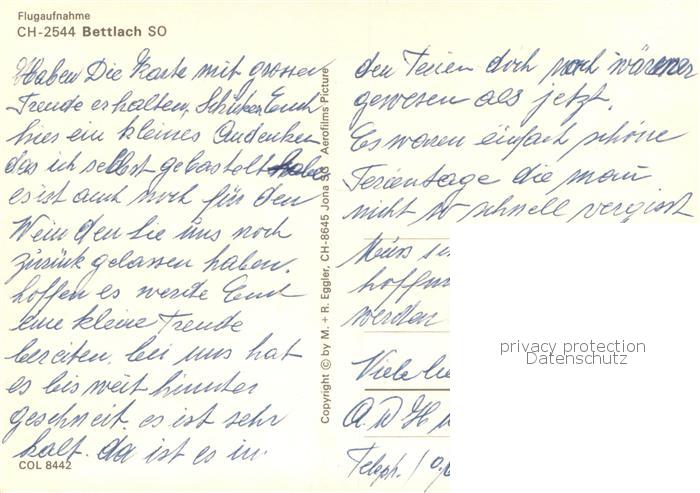 Flugaufnahme
CH-2544 Bettlach SO
Haben Die Karte mit grosser
Freude erhalten, Schicken Euch
hier ein kleines Andenken
das ich selbst gebastelt habe
es ist auch noch für den
Wein den Sie uns noch
zurück gelassen haben.
hoffen es werde Euch
eine kleine Freude
bereiten. bei uns hat
es bis weit hinunter
geschneit. es ist sehr
kalt. da ist es in
COL 8442
Copyright © by M. + R. Eggler, CH-8645 Jona SG Aerofilms Picture
den Ferien doch noch wärmer
gewesen als jetzt.
Es waren einfach schöne
Ferientage die man
nicht so schnell vergisst
Muss
hoffen
werden
Viele lie
A. D H
Teleph. / 0
privacy protection
Datenschutz